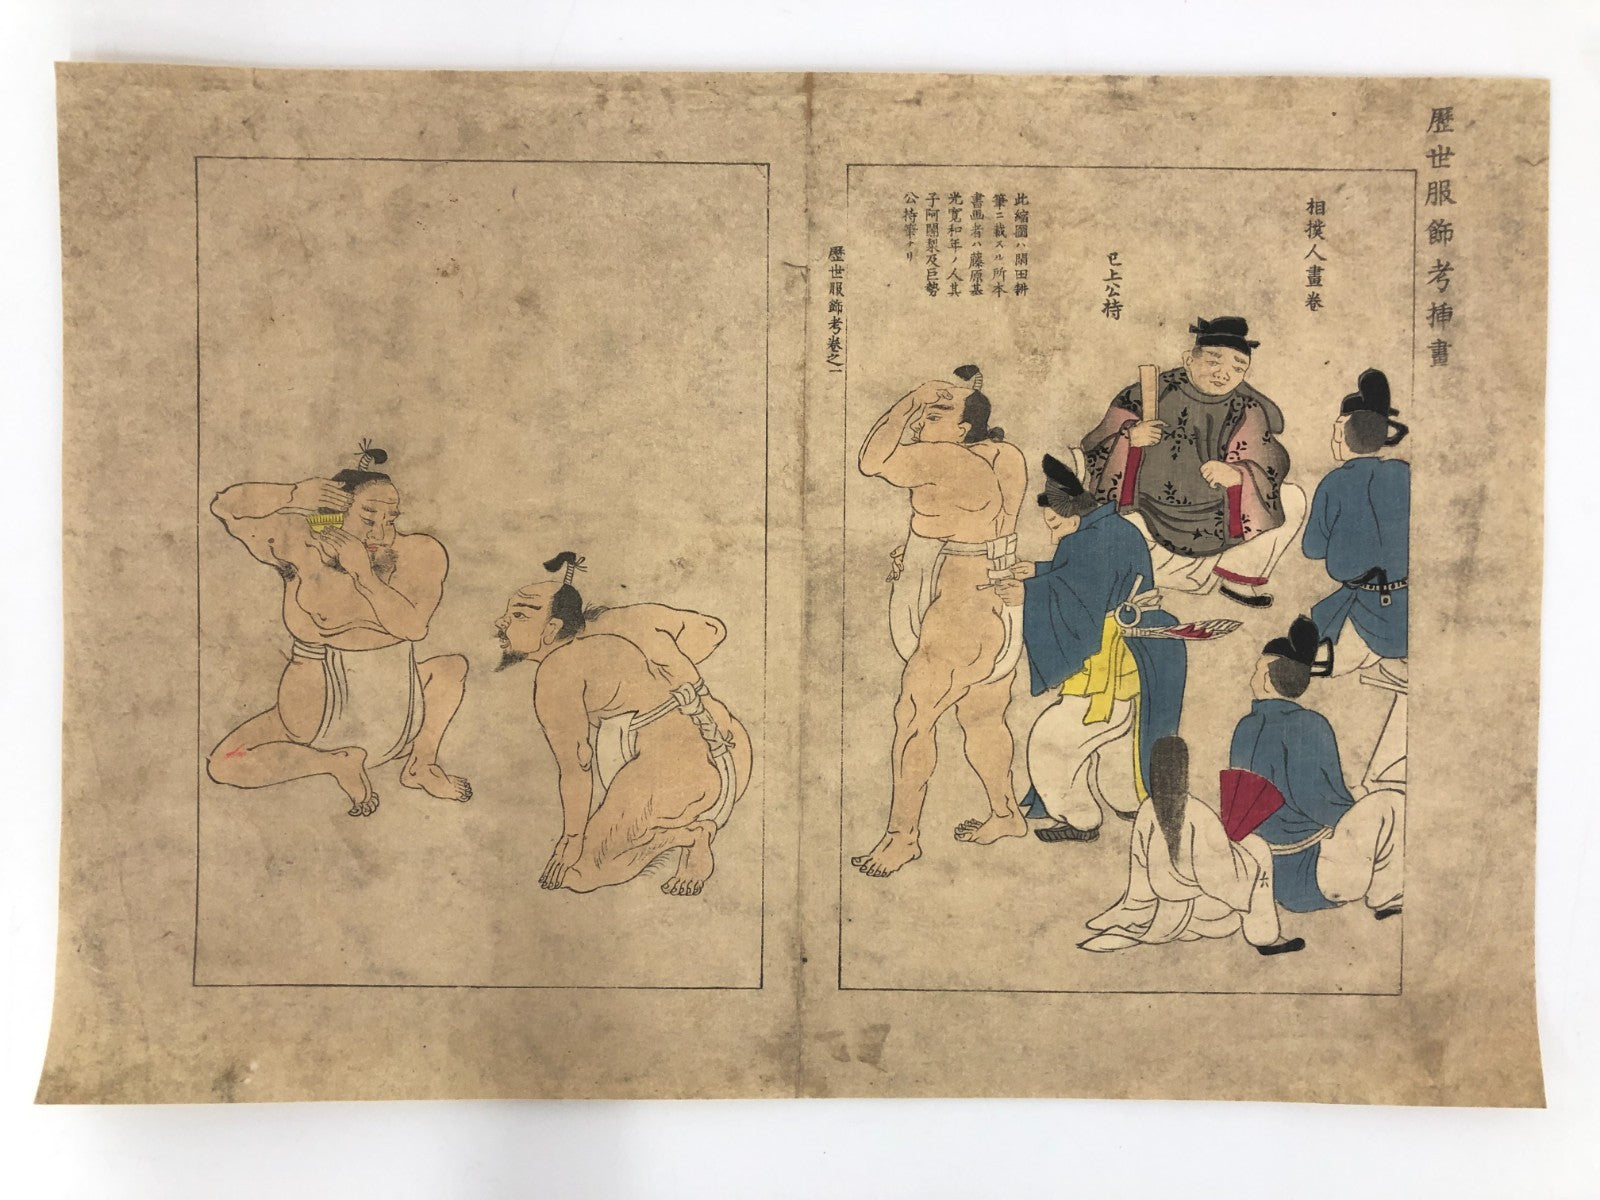 歴世服飾考挿畫
相撲人畫巻
已上公持
此縮圖ハ閑田耕
筆ニ載スル所本
書画者ハ藤原基
光寛和年ノ人其
子阿闍梨及巨勢
公持筆ナリ
歴世服飾考巻之一